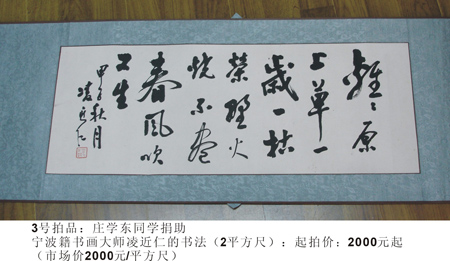 離々原
上草一
歲一枯
榮野火
燒不盡
春風吹
又生
甲子秋月
凌近仁
3号拍品：庄学东同学捐助
宁波籍书画大师凌近仁的书法（2平方尺）：起拍价：2000元起
（市场价2000元/平方尺）